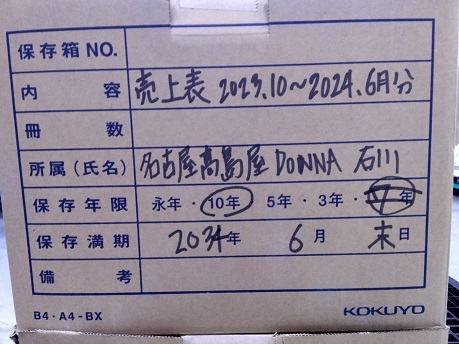 保存箱NO.
内容 売上表 2023.10~2024.6月分
冊数
所属(氏名) 名古屋高島屋 DONNA 石川
保存年限 永年・10年 5年・3年・7年
保存満期 2034年 6月 末日
備考
B4・A4-BX KOKUYO